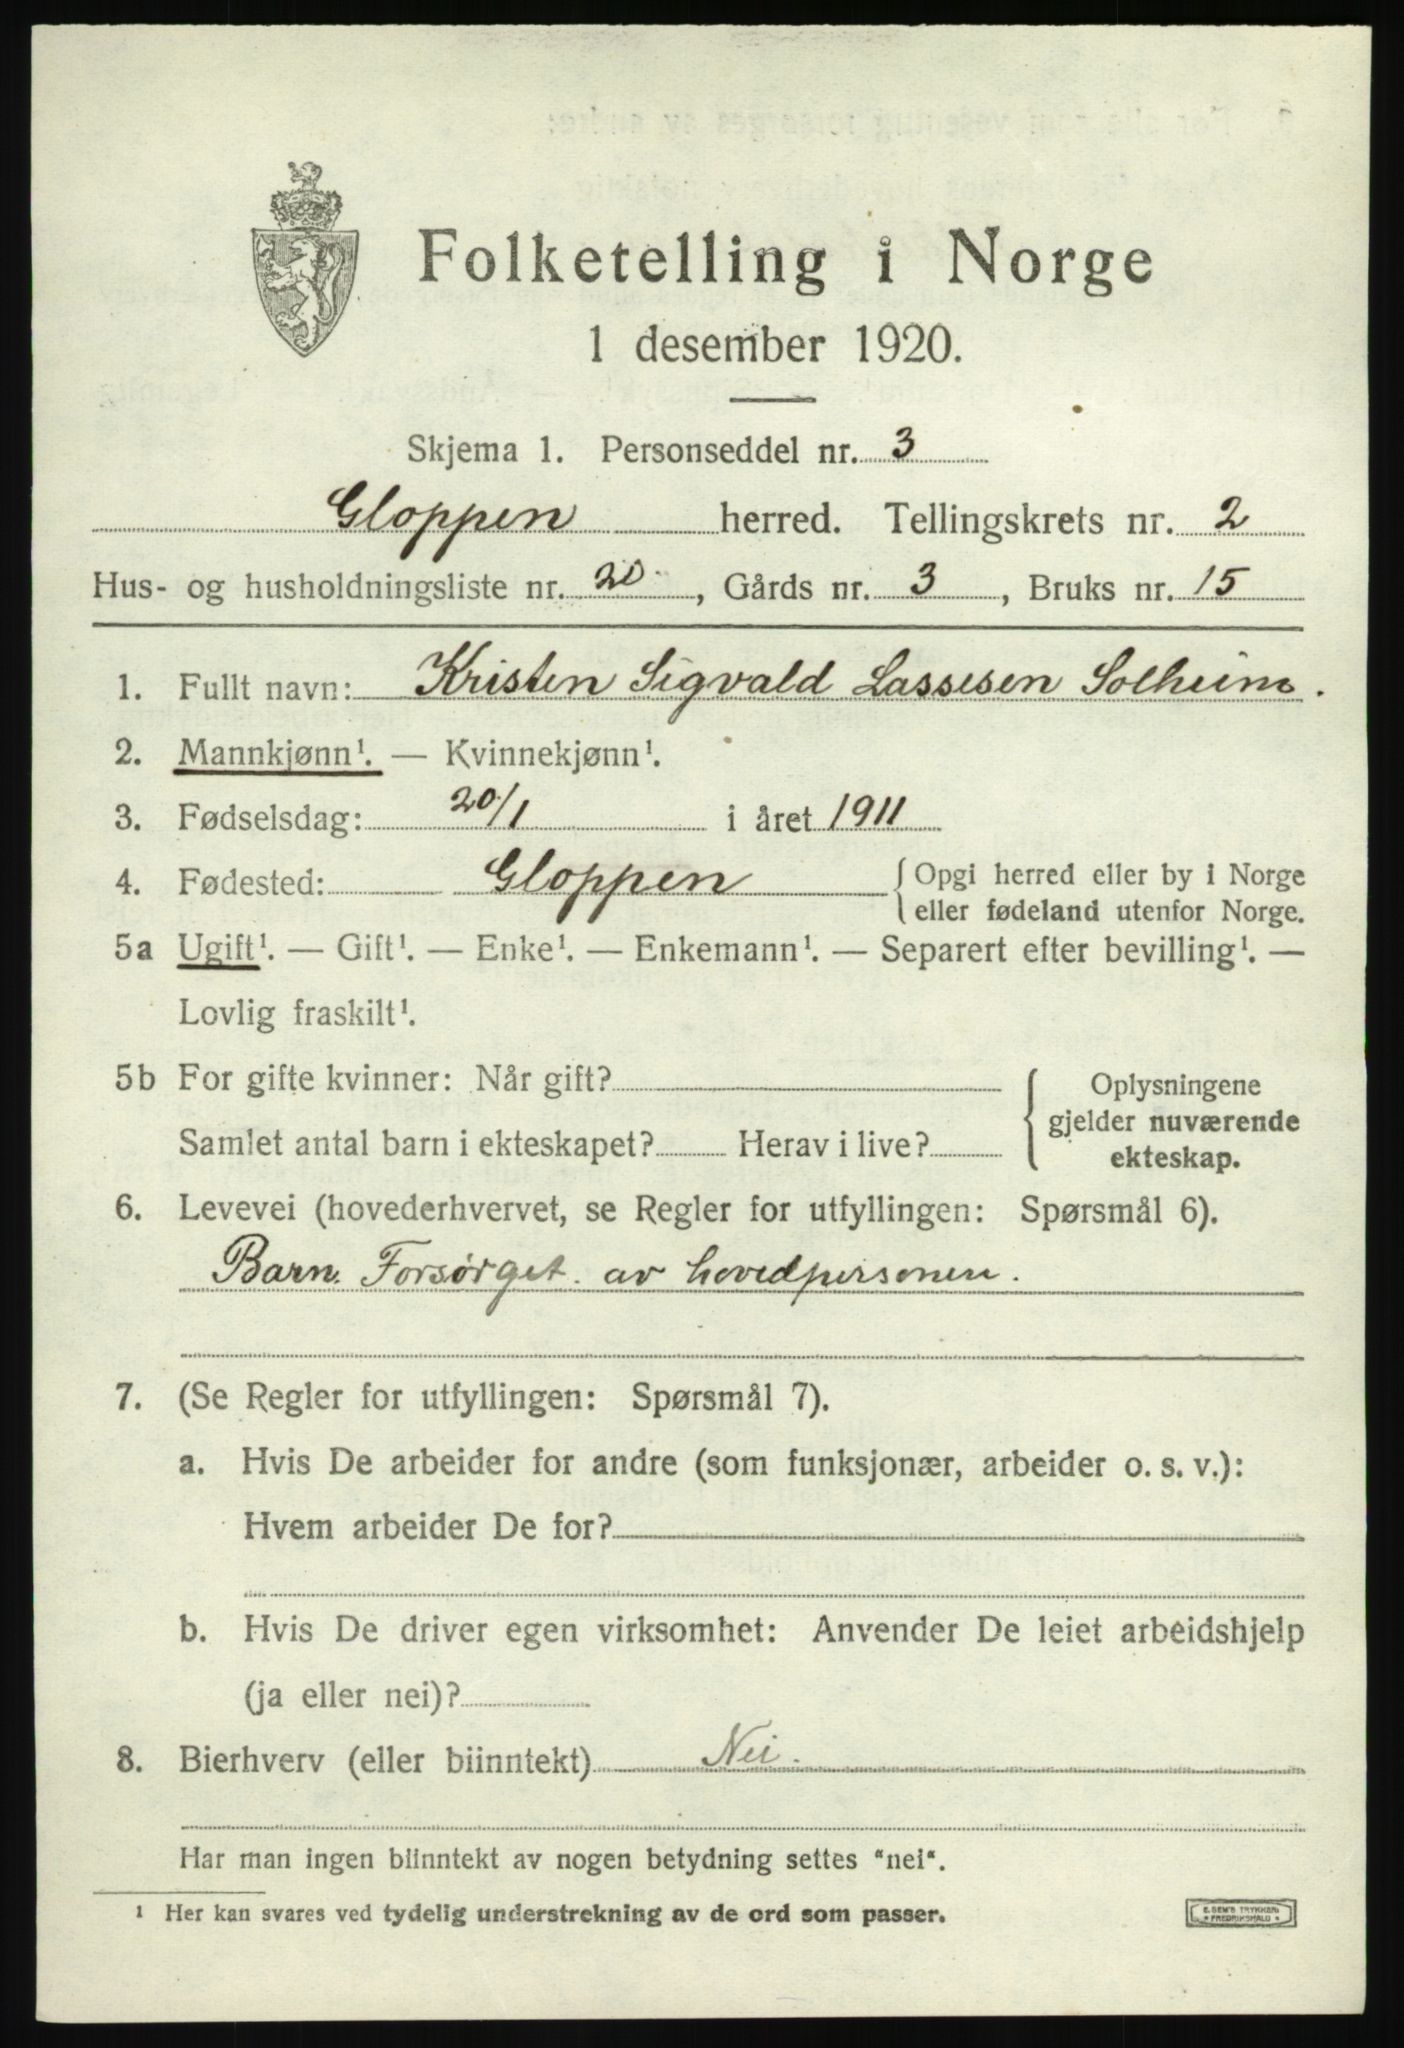 Folketelling i Norge
1 desember 1920.
Skjema 1. Personseddel nr. 3
Gloppen herred. Tellingskrets nr. 2
Hus- og husholdningsliste nr. 20, Gårds nr. 3, Bruks nr. 15
1. Fullt navn: Kristen Sigvald Lassesen Solheim.
2. Mannkjønn¹. — Kvinnekjønn¹.
3. Fødselsdag: 20/1 i året 1911
4. Fødested: Gloppen { Opgi herred eller by i Norge
eller fødeland utenfor Norge.
5a Ugift¹. — Gift¹. — Enke¹. — Enkemann¹. — Separert efter bevilling¹. —
Lovlig fraskilt¹.
5b For gifte kvinner: Når gift? { Oplysningene
gjelder nuværende
Samlet antal barn i ekteskapet? Herav i live? ekteskap.
6. Levevei (hovederhvervet, se Regler for utfyllingen: Spørsmål 6).
Barn. Forsørget. av hovedpersonen.
7. (Se Regler for utfyllingen: Spørsmål 7).
a. Hvis De arbeider for andre (som funksjonær, arbeider o. s. v.):
Hvem arbeider De for?
b. Hvis De driver egen virksomhet: Anvender De leiet arbeidshjelp
(ja eller nei)?
8. Bierhverv (eller biinntekt) Nei.
Har man ingen biinntekt av nogen betydning settes "nei".
¹ Her kan svares ved tydelig understrekning av de ord som passer.
E. SEM'S TRYKKERI
* FREDRIKSHALD *